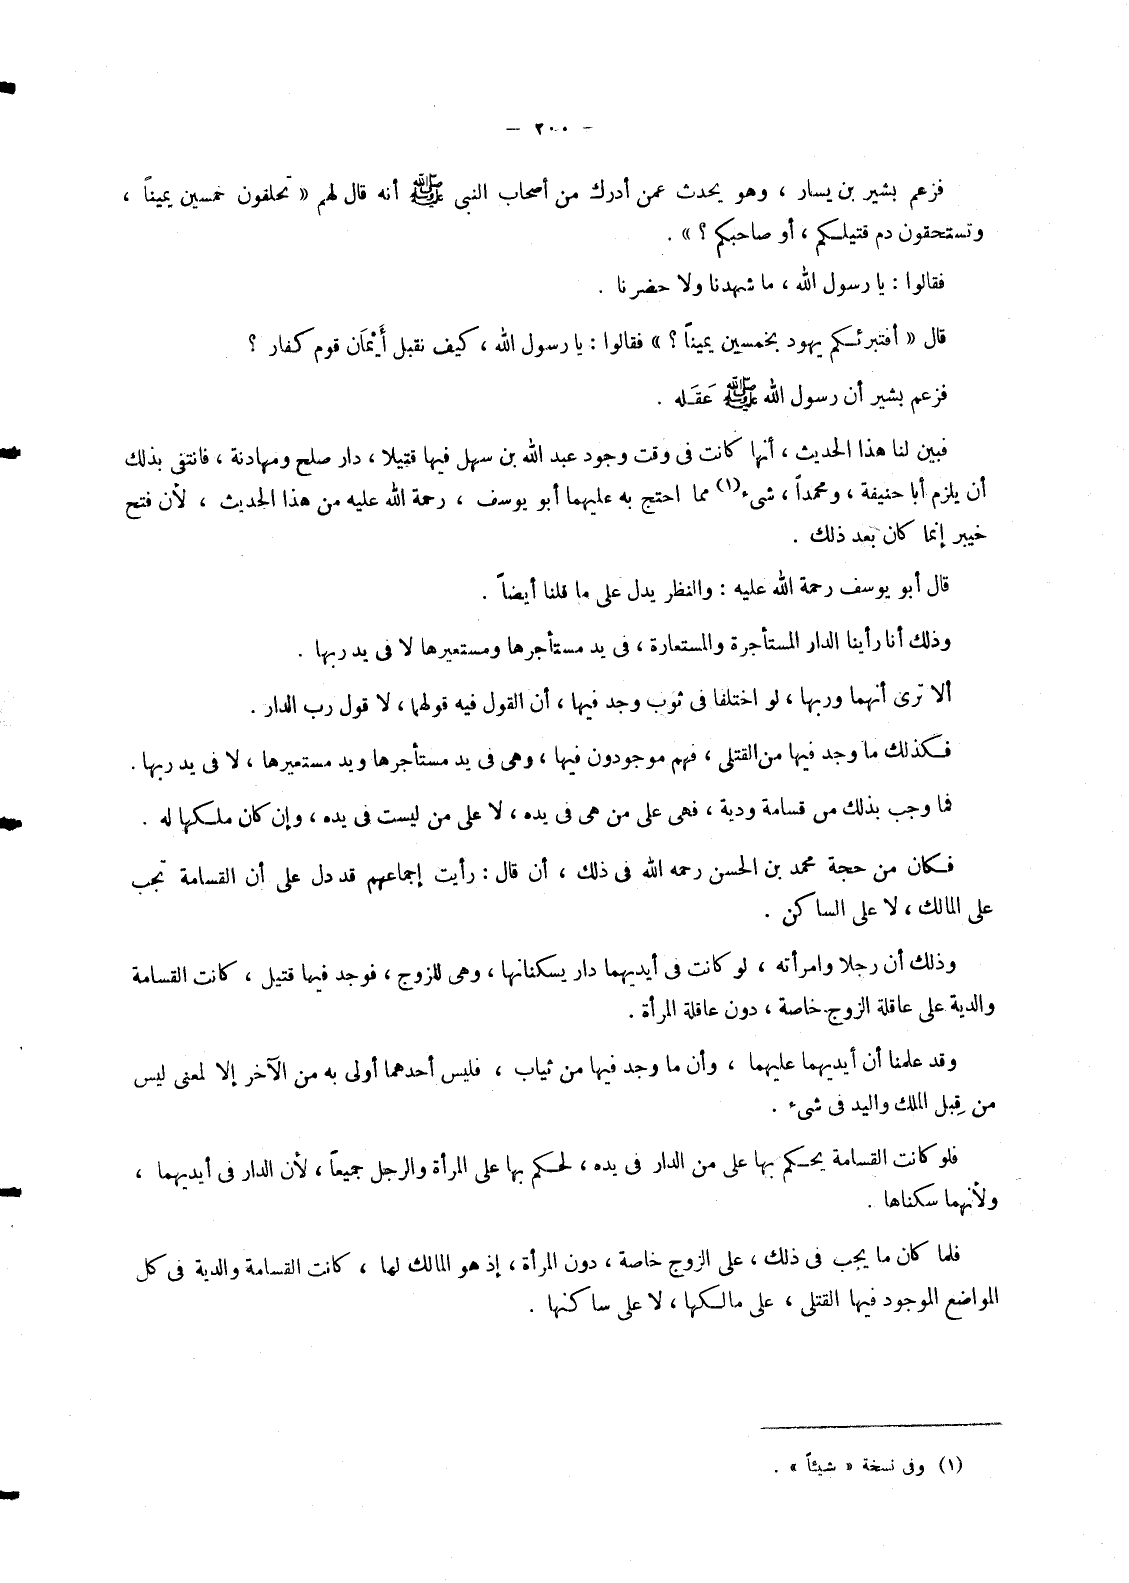 — ٢٠٠ —
فزعم بشير بن يسار ، وهو يحدث عمن أدرك من أصحاب النبى ﷺ أنه قال لهم « تحلفون خمسين يميناً ،
وتستحقون دم قتيلكم ، أو صاحبكم ؟ » .
فقالوا : يا رسول الله ، ما شهدنا ولا حضرنا .
قال « أفتبرئكم يهود بخمسين يميناً ؟ » فقالوا : يا رسول الله ، كيف نقبل أَيْمَان قوم كفار ؟
فزعم بشير أن رسول الله ﷺ عَقَله .
فبين لنا هذا الحديث ، أنها كانت فى وقت وجود عبد الله بن سهل فيها قتيلا ، دار صلح ومهادنة ، فانتفى بذلك
أن يلزم أبا حنيفة ، ومحمداً ، شىء(١) مما احتج به عليهما أبو يوسف ، رحمة الله عليه من هذا الحديث ، لأن فتح
خيبر إنما كان بعد ذلك .
قال أبو يوسف رحمة الله عليه : والنظر يدل على ما قلنا أيضاً .
وذلك أنا رأينا الدار المستأجرة والمستعارة ، فى يد مستأجرها ومستعيرها لا فى يد ربها .
ألا ترى أنهما وربها ، لو اختلفا فى ثوب وجد فيها ، أن القول فيه قولهما ، لا قول رب الدار .
فكذلك ما وجد فيها من القتلى ، فهم موجودون فيها ، وهى فى يد مستأجرها ويد مستعيرها ، لا فى يد ربها .
فما وجب بذلك من قسامة ودية ، فهى على من هى فى يده ، لا على من ليست فى يده ، وإن كان ملكها له .
فكان من حجة محمد بن الحسن رحمه الله فى ذلك ، أن قال : رأيت إجماعهم قد دل على أن القسامة تجب
على المالك ، لا على الساكن .
وذلك أن رجلا وامرأته ، لو كانت فى أيديهما دار يسكنانها ، وهى للزوج ، فوجد فيها قتيل ، كانت القسامة
والدية على عاقلة الزوج خاصة ، دون عاقلة المرأة .
وقد علمنا أن أيديهما عليهما ، وأن ما وجد فيها من ثياب ، فليس أحدهما أولى به من الآخر إلا لمعنى ليس
من قِبل الملك واليد فى شىء .
فلو كانت القسامة يحكم بها على من الدار فى يده ، لحكم بها على المرأة والرجل جميعاً ، لأن الدار فى أيديهما ،
ولأنهما سكناها .
فلما كان ما يجب فى ذلك ، على الزوج خاصة ، دون المرأة ، إذ هو المالك لها ، كانت القسامة والدية فى كل
المواضع الموجود فيها القتلى ، على مالكها ، لا على ساكنها .
(١) وفى نسخة « شيئاً » .